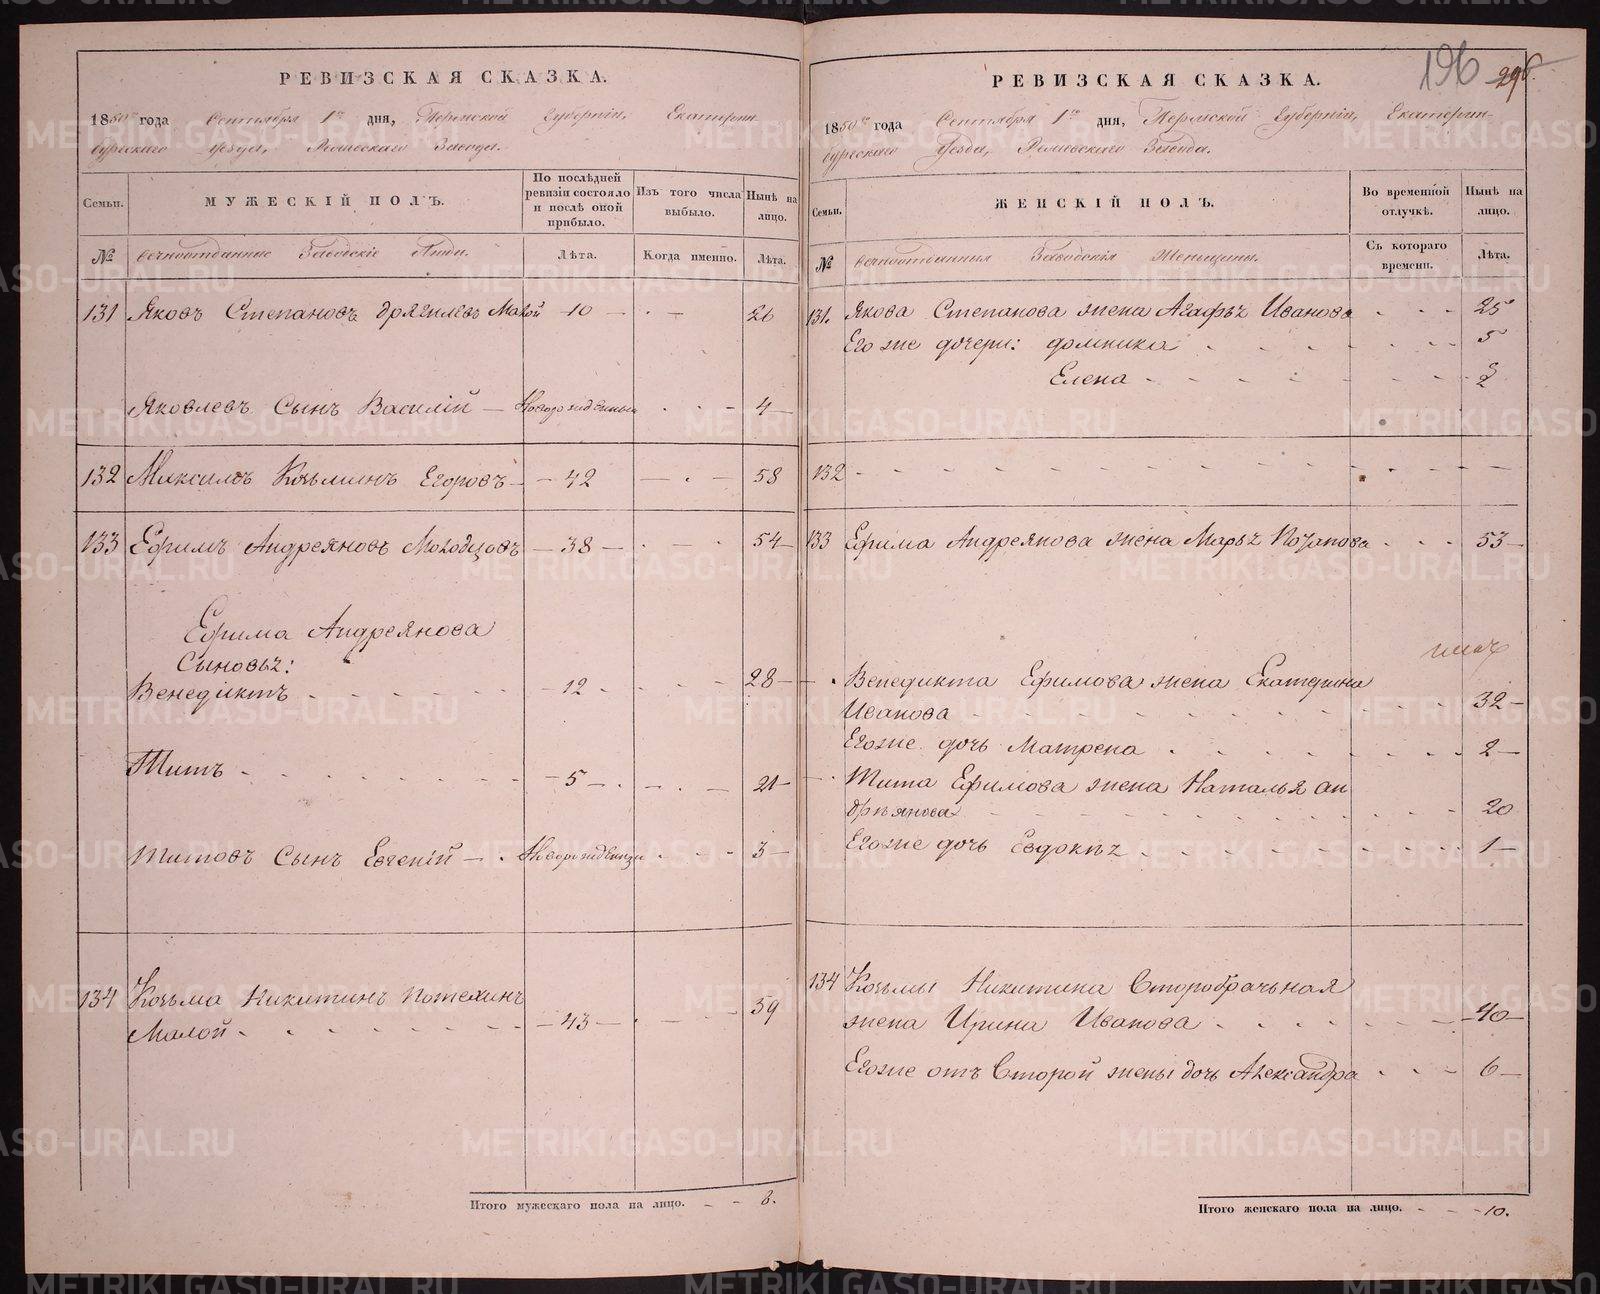 РЕВИЗСКАЯ СКАЗКА.
1850го года Сентября 1го дня, Пермской Губерніи, Екатерин-
бургскаго Уезда, Завода.
Семьи.
МУЖЕСКІЙ ПОЛЪ.
По послѣдней ревизіи состояло и послѣ оной прибыло.
Изъ того числа выбыло.
Нынѣ на лицо.
№
вечноотданные Заводскіе Люди.
Лѣта.
Когда именно.
Лѣта.
131 Яковъ Степановъ Дрягилевъ Малой 10 26
Яковлевъ Сынъ Василій Новорожденный 4
132 Максимъ Козьминъ Егоровъ 42 58
133 Ефимъ Андреяновъ Молодцовъ 38 54
Ефима Андреянова
Сыновья:
Венедиктъ 12 28
Титъ 5 21
Титовъ Сынъ Евгеній Новорожденный 3
134 Козьма Никитинъ Потехинъ
Малой 43 59
Итого мужескаго пола на лицо. 8.
196 296
РЕВИЗСКАЯ СКАЗКА.
1850го года Сентября 1го дня, Пермской Губерніи, Екатерин-
бургскаго Уезда, Завода.
Семьи.
ЖЕНСКІЙ ПОЛЪ.
Во временной отлучкѣ.
Нынѣ на лицо.
№
вечноотданныя Заводскія Женьщины.
Съ котораго времени.
Лѣта.
131. Якова Степанова жена Агафья Иванова 25
Его же дочери: Домника 5
Елена 2
132
133 Ефима Андреянова жена Марья Потапова 53
Венедикта Ефимова жена Екатерина
Иванова 32
Егоже дочь Матрена 2
Тита Ефимова жена Наталья Ан
дреянова 20
Егоже дочь Евдокья 1
134 Козьмы Никитина Второбрачьная
жена Ирина Иванова 40
Егоже отъ Второй жены дочь Александра 6
Итого женскаго пола на лицо. 10.
METRIKI.GASO-URAL.RU